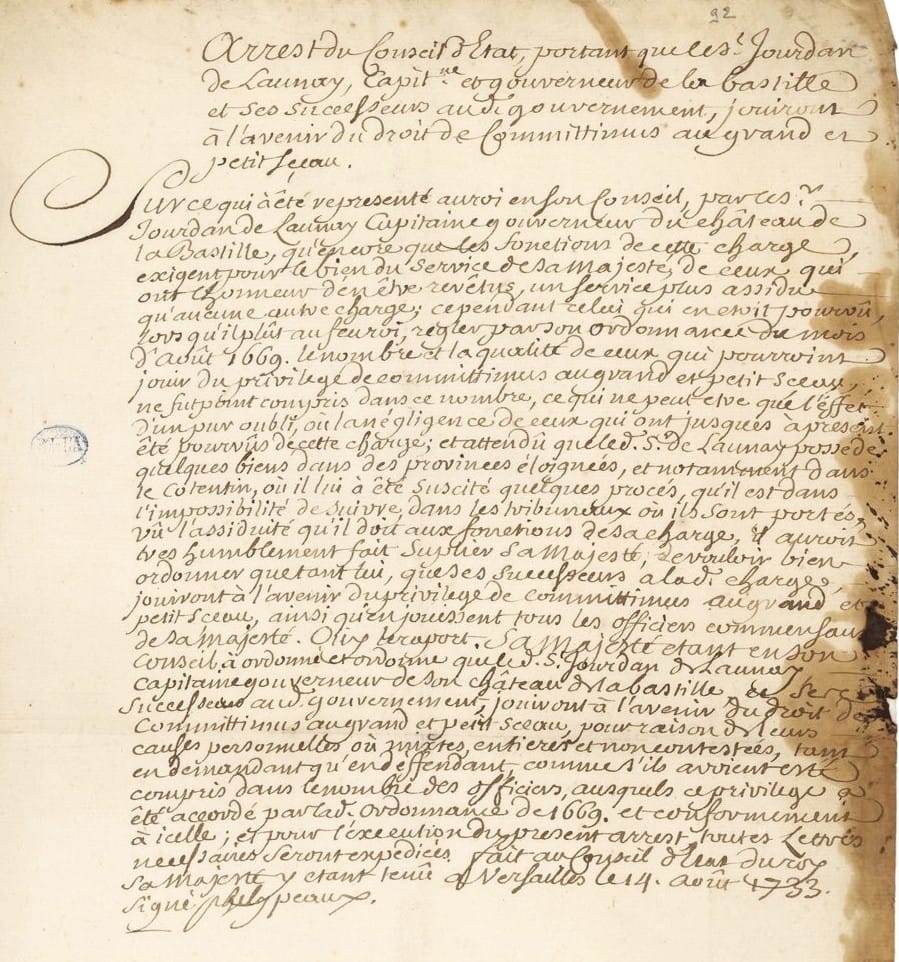 92
Arrest du Conseil d'Etat, portant que le s.r Jourdan
de Launay, Capit.ne et gouverneur de la bastille
et ses successeurs aud. gouvernement, jouiront
à l'avenir du droit de Committimus au grand et
petit sçeau.
Sur ce qui à été representé au roi en son Conseil, par le s.r
Jourdan de Launay Capitaine gouverneur du château de
la Bastille, qu'encore que les fonctions de cette charge,
exigent pour le bien du service de sa Majesté, de ceux qui
ont l'honneur d'en être revêtus, un service plus assidu
qu'aucune autre charge; cependant celui qui en etoit pourvû,
lors qu'il plût au feu roi, régler par son ordonnance du mois
d'août 1669. le nombre et la qualité de ceux qui pourroint
jouir du privilege de committimus au grand et petit sceau,
ne fut point compris dans ce nombre, ce qui ne peut etre que l'effet
d'un pur oubli, où la négligence de ceux qui ont jusques à present
été pourvûs de cette charge; et attendu que le d. S.r de Launay possede
quelques biens dans des provinces éloignées, et notamment dans
le Cotentin, où il lui à été suscité quelques procés, qu'il est dans
l'impossibilité de suivre, dans les tribuneaux où ils sont portés,
vû l'assiduité qu'il doit aux fonctions de sa charge, il auroit
tres humblement fait suplier sa Majesté, de vouloir bien
ordonner que tant lui, que ses successeurs a lad. charge,
jouiront à l'avenir du privilege de committimus au grand, et
petit sceau, ainsi qu'en jouissent tous les officiers commensaux
de sa Majesté. Ouy le raport. Sa Majesté etant en son
Conseil, à ordonné et ordonne que le d. S.r Jourdan de Launay
Capitaine gouverneur de son château de la bastille, et ses
successeurs aud. gouvernement, jouiront à l'avenir du droit de
Committimus au grand et petit sceau, pour raison de leurs
causes personnelles où mixtes, entieres et non contestées, tant
en demandant qu'en déffendant, comme s'ils avoient esté
compris dans le nombre des officiers, ausquels ce privilege a
été accordé par lad. ordonnance de 1669. et conformement
à icelle; et pour l'éxecution du present arrest, toutes Lettres
necessaires seront expediées. fait au Conseil d'Etat du roy
sa Majesté y etant tenû a Versailles le 14. août 1733.
signé phelypeaux.